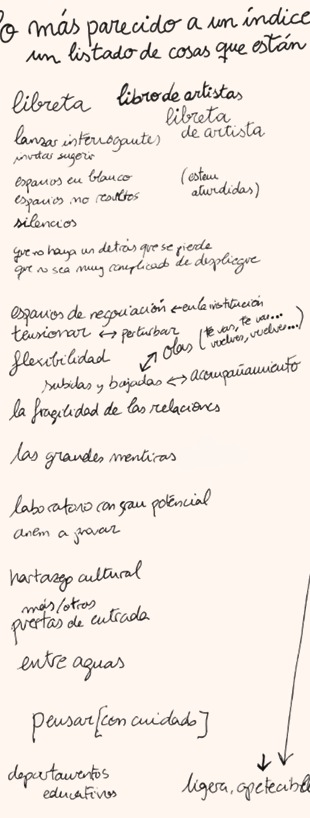 lo más parecido a un índice
un listado de cosas que están
libreta libro de artistas
libreta
de artista
lanzar interrogantes
invitar sugerir
espacios en blanco (estem
espacios no resoltos aturdidas)
silencios
que no haya un detrás que se pierde
que no sea muy complicado de despliegue
espacios de negociación ← en la institución
tensionar ↔ perturbar
flexibilidad ↗ olas (te vas, te vas...
vuelves, vuelves...)
subidas y bajadas ↔ acompañamiento
la fragilidad de las relaciones
las grandes mentiras
laboratorio con gran potencial
anem a provar
hartazgo cultural
más/otros
puertas de entrada
entre aguas
pensar [con cuidado]
departamentos
educativos
ligera, apetecible